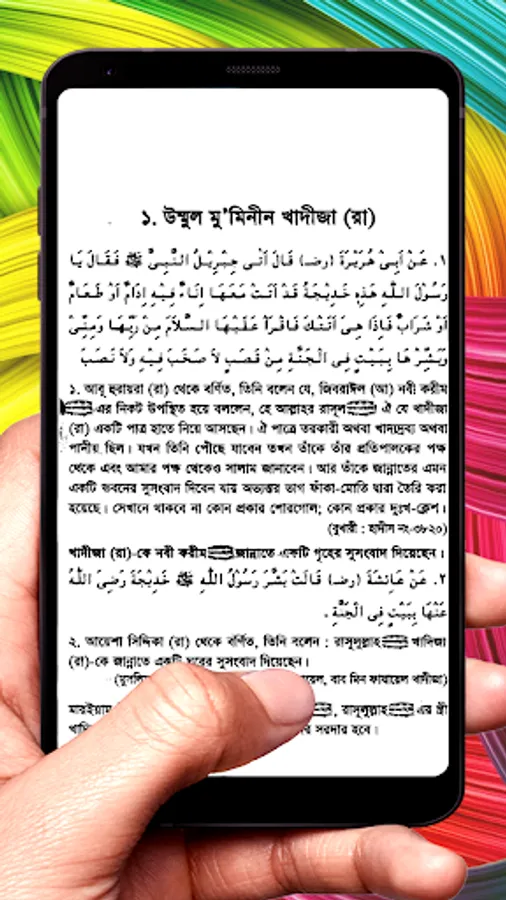 ১. উম্মুল মু'মিনীন খাদীজা (রা)
١. عَنْ اَبِىْ هُرَيْرَةَ (رض) قَالَ اَتٰى جِبْرِيْلُ النَّبِىَّ ﷺ فَقَالَ يَا
رَسُوْلَ اللّٰهِ هٰذِهٖ خَدِيْجَةُ قَدْ اَتَتْ مَعَهَا اِنَاءٌ فِيْهِ اِدَامٌ اَوْ طَعَامٌ
اَوْ شَرَابٌ فَاِذَا هِىَ اَتَتْكَ فَاقْرَأْ عَلَيْهَا السَّلاَمَ مِنْ رَبِّهَا وَمِنِّىْ
وَبَشِّرْهَا بِبَيْتٍ فِى الْجَنَّةِ مِنْ قَصَبٍ لاَ صَخَبَ فِيْهِ وَلاَ نَصَبَ
১. আবূ হুরায়রা (রা) থেকে বর্ণিত, তিনি বলেন যে, জিবরাঈল (আ) নবী করীম
-এর নিকট উপস্থিত হয়ে বললেন, হে আল্লাহর রাসূল ! ঐ যে খাদীজা
(রা) একটি পাত্র হাতে নিয়ে আসছেন। ঐ পাত্রে তরকারী অথবা খাদ্যদ্রব্য অথবা
পানীয় ছিল। যখন তিনি পৌছে যাবেন তখন তাঁকে তাঁর প্রতিপালকের পক্ষ
থেকে এবং আমার পক্ষ থেকেও সালাম জানাবেন। আর তাঁকে জান্নাতের এমন
একটি ভবনের সুসংবাদ দিবেন যায় অভ্যন্তর ভাগ ফাঁকা-মোতি দ্বারা তৈরি করা
হয়েছে। সেখানে থাকবে না কোন প্রকার শোরগোল; কোন প্রকার দুঃখ-ক্লেশ।
(বুখারী : হাদীস নং-৩৮২০)
খাদীজা (রা)-কে নবী করীম জান্নাতে একটি গৃহের সুসংবাদ দিয়েছেন।
٢. عَنْ عَائِشَةَ (رض) قَالَتْ بَشَّرَ رَسُوْلُ اللّٰهِ ﷺ خَدِيْجَةَ رَضِىَ اللّٰهُ
عَنْهَا بِبَيْتٍ فِى الْجَنَّةِ .
২. আয়েশা সিদ্দিকা (রা) থেকে বর্ণিত, তিনি বলেন : রাসূলুল্লাহ খাদিজা
(রা)-কে জান্নাতে একটি ঘরের সুসংবাদ দিয়েছেন।
বাব মিন ফাযায়েল খাদীজা)
মারইয়াম , রাসূলুল্লাহ এর স্ত্রী
সরদার হবে।